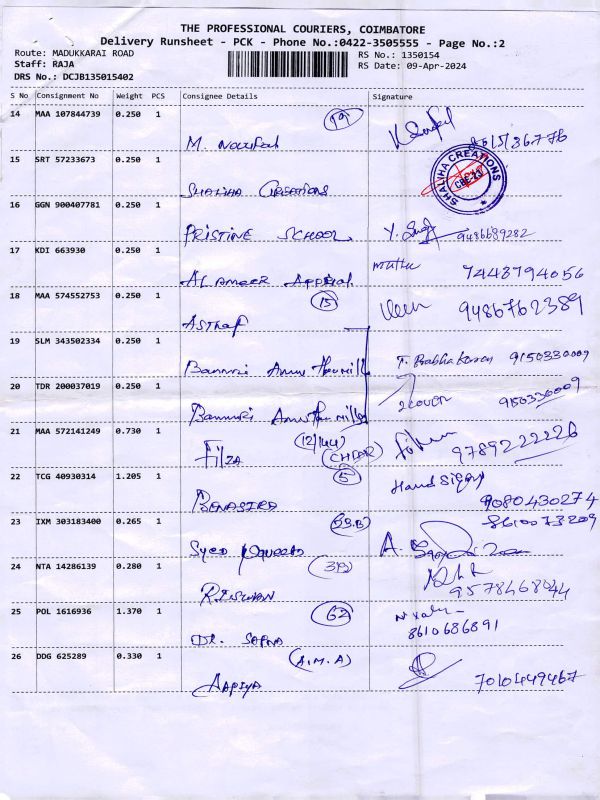 THE PROFESSIONAL COURIERS, COIMBATORE
Delivery Runsheet - PCK - Phone No.:0422-3505555 - Page No.:2
Route: MADUKKARAI ROAD
RS No.: 1350154
Staff: RAJA
RS Date: 09-Apr-2024
DRS No.: DCJB135015402
S No Consignment No Weight PCS Consignee Details Signature
14 MAA 107844739 0.250 1
M.
15 SRT 57233673 0.250 1
SHALIHA CREATIONS
CBE-23
SHALIHA CREATIONS
16 GGN 900407781 0.250 1
PRISTINE SCHOOL Y. 9486689282
17 KDI 663930 0.250 1
AL AMEER muthu 7443794056
18 MAA 574552753 0.250 1
15
ASTHAF 9486762389
19 SLM 343502334 0.250 1
Bannari Amman T. Prabhakaran 9150330009
20 TDR 200037019 0.250 1
Bannari Amman 9150330009
21 MAA 572141249 0.730 1
(12/144)
FILZA 9789222226
22 TCG 40930314 1.205 1
5
BENASIRA 9080430274
23 IXM 303183400 0.265 1
8610073209
Syed A.
24 NTA 14286139 0.280 1
RISWAN 9578468044
25 POL 1616936 1.370 1
62
DR. SAFNA 8610686891
26 DDG 625289 0.330 1
(A.M.A)
AAFIYA 7010449467